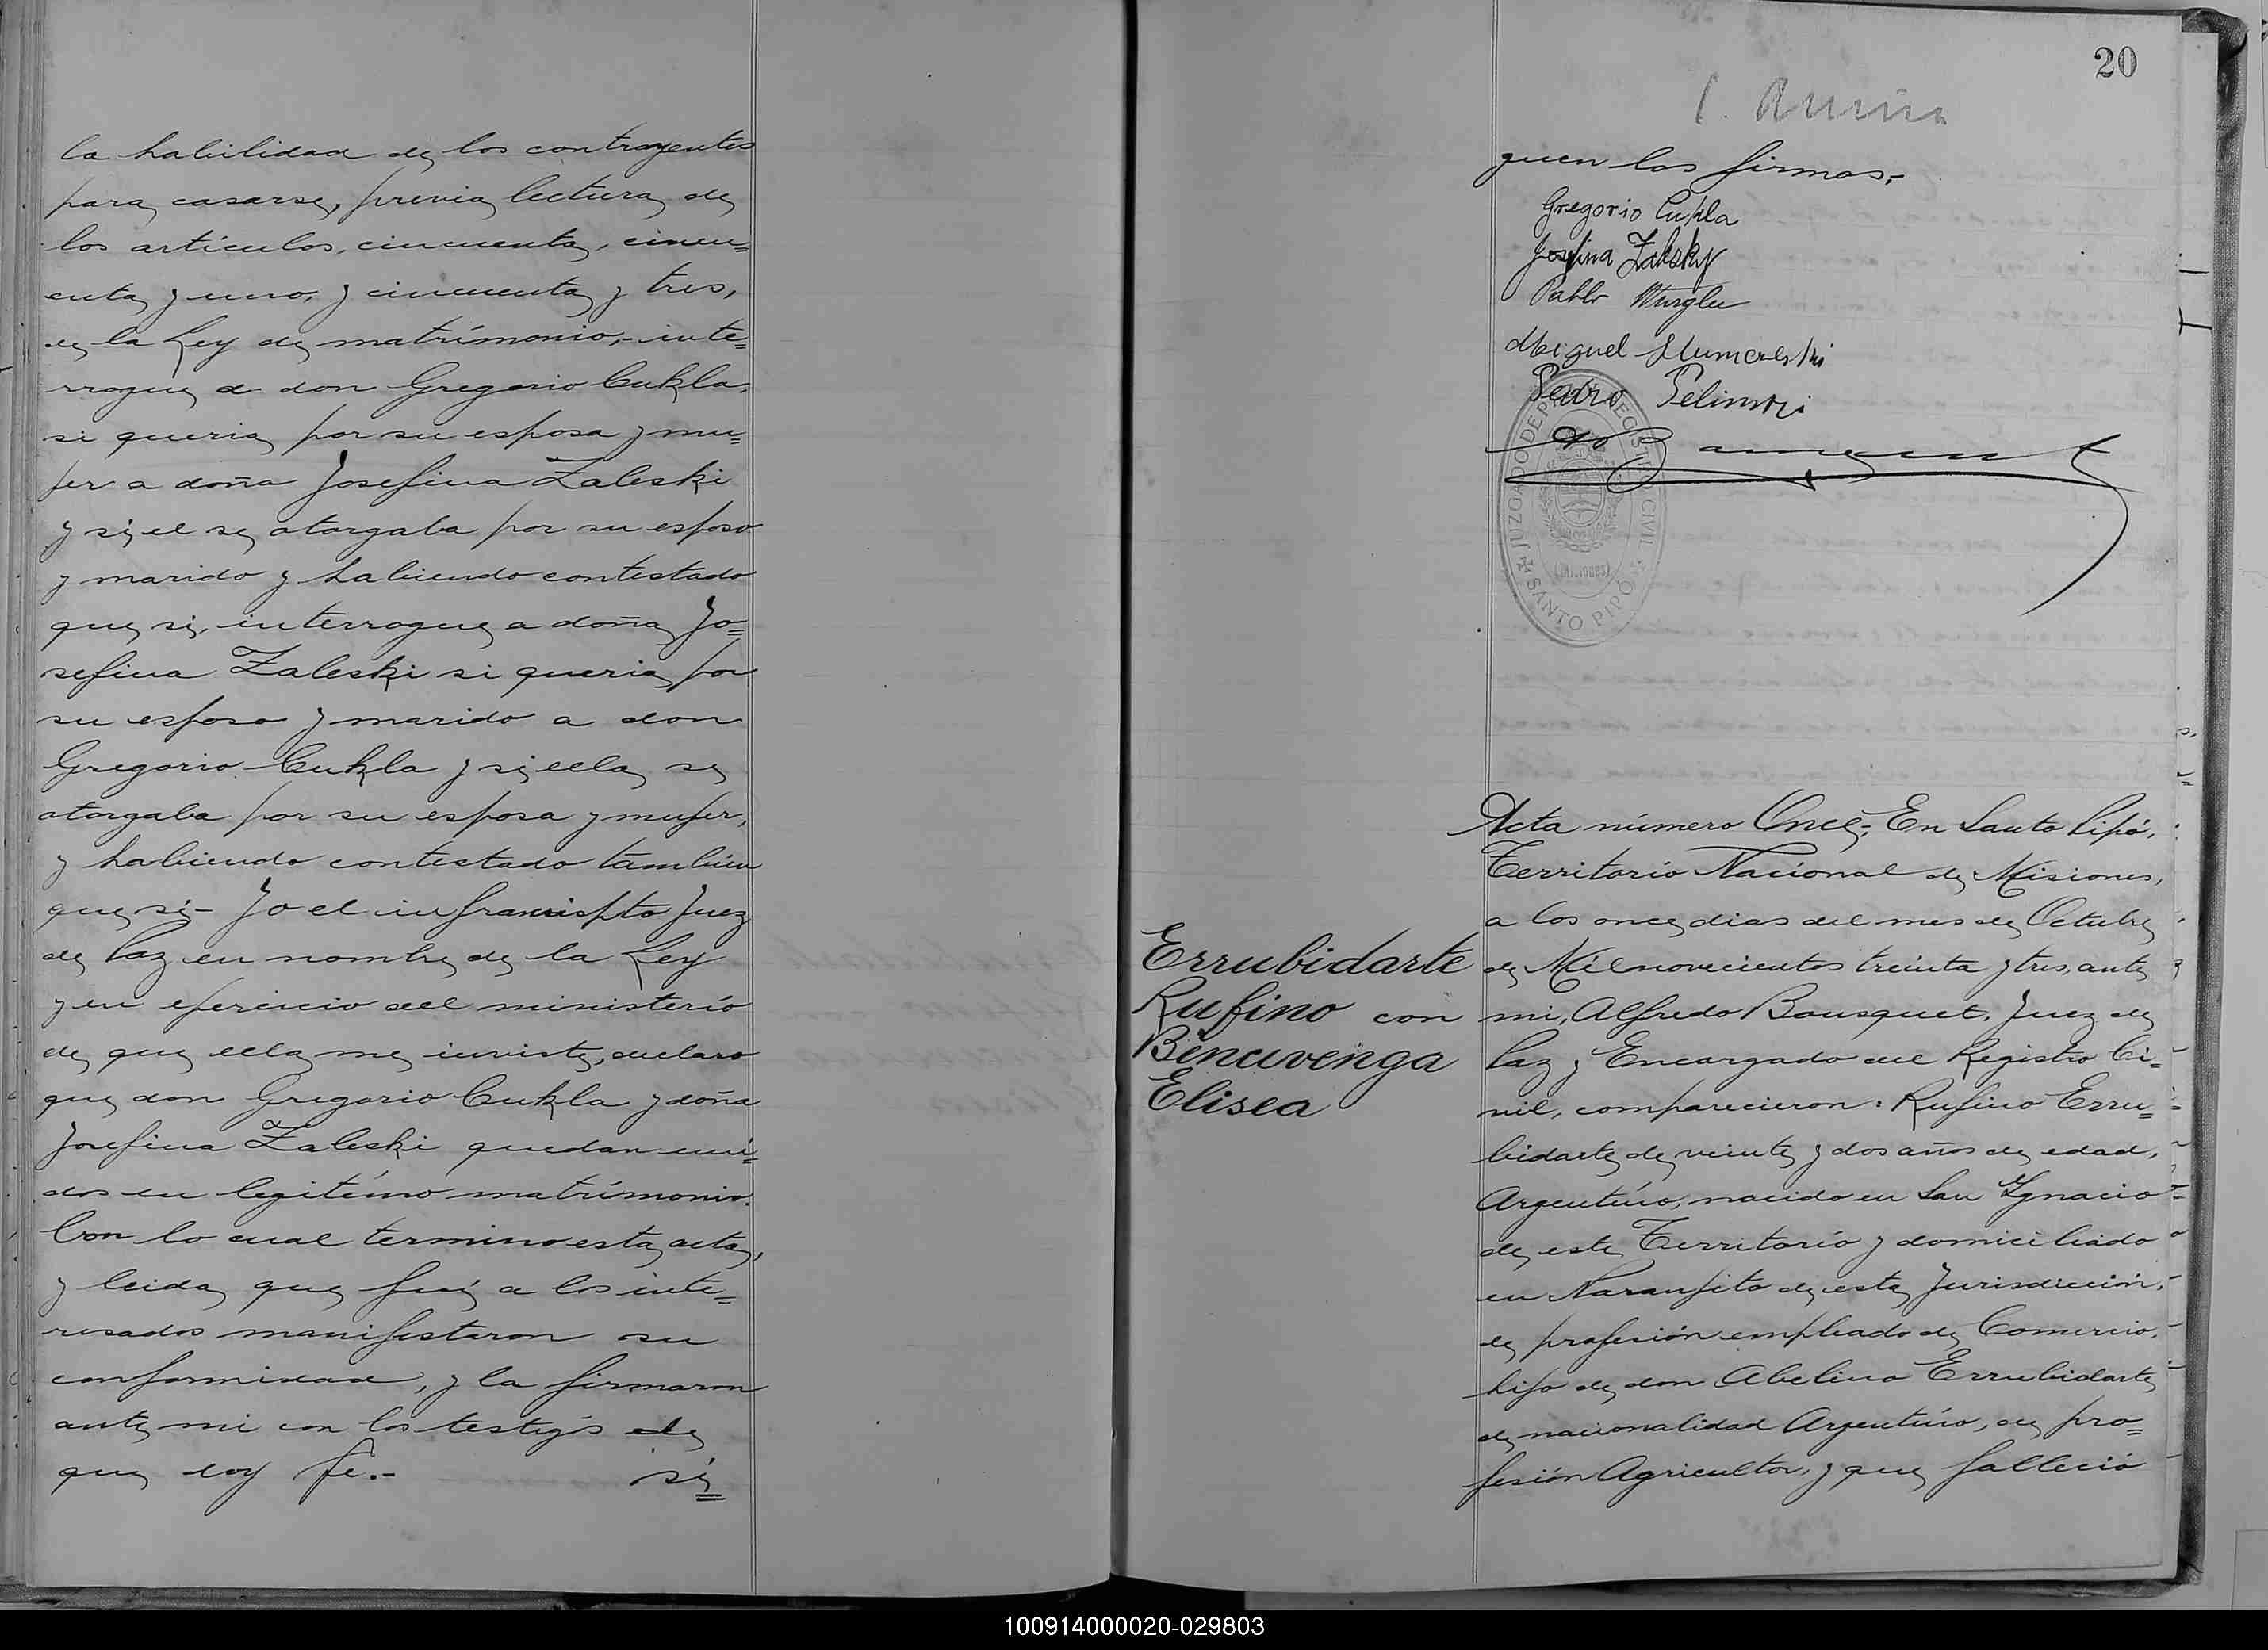 la habilidad de los contrayentes
para casarse, previa lectura de
los artículos, cincuenta, cincu=
enta y uno, y cincuenta y tres,
de la Ley de matrímonio,- inte=
rrogue a don Gregorio Cukla,
si queria por su esposa y mu=
jer a doña Josefina Zaleski
y si el se otorgaba por su esposo
y marido y habiendo contestado
que si, interrogue a doña Jo=
sefina Zaleski si queria por
su esposo y marido a don
Gregorio Cukla y si ella se
otorgaba por su esposa y mujer,
y habiendo contestado tambien
que si- Yo el infrascripto Juez
de Paz en nombre de la Ley
y en ejercicio del ministerio
de que ella me inviste, declaro
que don Gregorio Cukla y doña
Josefina Zaleski quedan uni=
dos en legitímo matrímonio.
Con lo cual termino esta acta,
y leida que fué a los inte=
resados manifestaron su
conformidad, y la firmaron
ante mi con los testigós de
que doy fe.- si
20
guen las firmas,-
Gregorio Cupla
Josefina Zalesky
Pablo
Miguel
Pedro
JUZGADO DE PAZ REGISTRO CIVIL
(MISIONES)
SANTO PIPÓ
Errubidarte
Rufino con
Benavenga
Elisea
Acta número Once,- En Santo Pipó,
Territorio Nacional de Misiones,
a los once dias del mes de Octubre
de Mil novecientos treinta y tres, ante
mi, Alfredo Bousquet, Juez de
Paz y Encargado del Registro Ci=
vil, comparecieron: Rufino Erru=
bidarte de veinte y dos años de edad,
Argentino, nacido en San Ygnacio
de este Territorio y domiciliado
en Naranjito de esta Jurisdiccion,
de profesión empleado de Comercio,
hijo de don Abelino Errubidarte
de nacionalidad Argentino, de pro=
fesión Agricultor, y que falleció
100914000020-029803